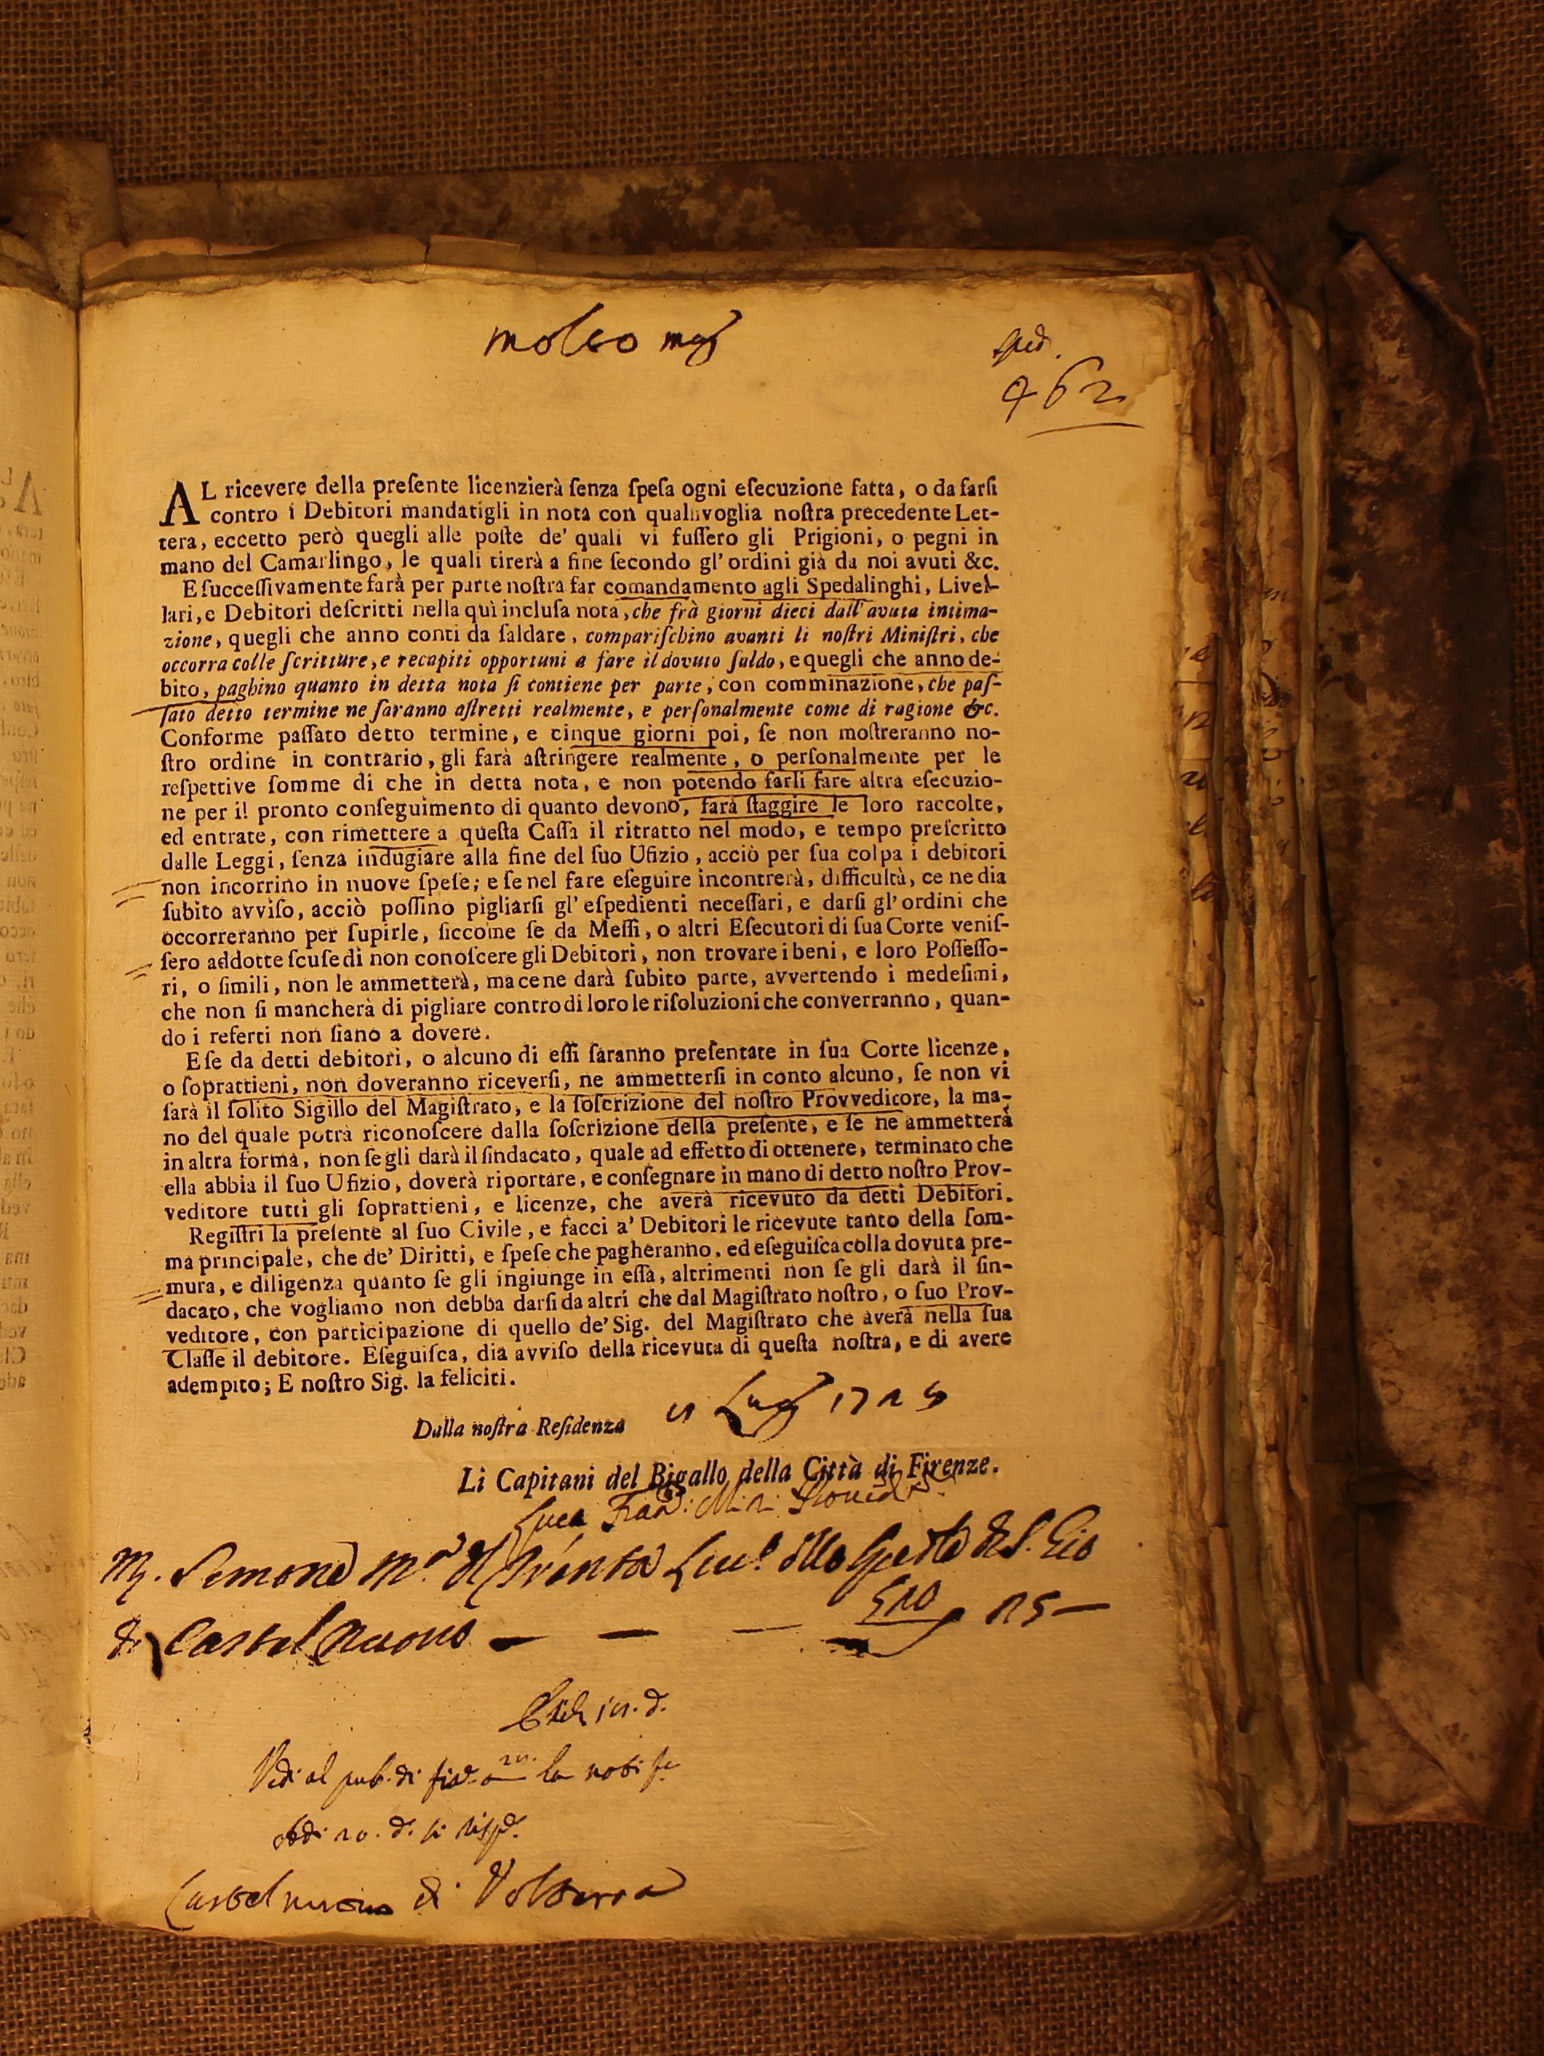 molto mag
sped.
462
AL ricevere della preſente licenzierà ſenza ſpeſa ogni eſecuzione fatta, o da farſi
contro i Debitori mandatigli in nota con qualſivoglia noſtra precedente Let-
tera, eccetto però quegli alle poſte de' quali vi fuſſero gli Prigioni, o pegni in
mano del Camarlingo, le quali tirerà a fine ſecondo gl' ordini già da noi avuti &c.
E ſucceſſivamente farà per parte noſtra far comandamento agli Spedalinghi, Livel-
lari, e Debitori deſcritti nella quì incluſa nota, che frà giorni dieci dall' avuta intima-
zione, quegli che anno conti da ſaldare, compariſchino avanti li noſtri Miniſtri, che
occorra colle ſcritture, e recapiti opportuni a fare il dovuto ſaldo, e quegli che anno de-
bito, paghino quanto in detta nota ſi contiene per parte, con comminazione, che paſ-
ſato detto termine ne ſaranno aſtretti realmente, e perſonalmente come di ragione &c.
Conforme paſſato detto termine, e cinque giorni poi, ſe non moſtreranno no-
ſtro ordine in contrario, gli farà aſtringere realmente, o perſonalmente per le
reſpettive ſomme di che in detta nota, e non potendo farſi fare altra eſecuzio-
ne per il pronto conſeguimento di quanto devono, farà ſtaggire le loro raccolte,
ed entrate, con rimettere a queſta Caſſa il ritratto nel modo, e tempo preſcritto
dalle Leggi, ſenza indugiare alla fine del ſuo Ufizio, acciò per ſua colpa i debitori
non incorrino in nuove ſpeſe; e ſe nel fare eſeguire incontrerà, difficultà, ce ne dia
ſubito avviſo, acciò poſſino pigliarſi gl' eſpedienti neceſſari, e darſi gl' ordini che
occorreranno per ſupirle, ſiccome ſe da Meſſi, o altri Eſecutori di ſua Corte veniſ-
ſero addotte ſcuſe di non conoſcere gli Debitori, non trovare i beni, e loro Poſſeſſo-
ri, o ſimili, non le ammetterà, ma ce ne darà ſubito parte, avvertendo i medeſimi,
che non ſi mancherà di pigliare contro di loro le riſoluzioni che converranno, quan-
do i referti non ſiano a dovere.
E ſe da detti debitori, o alcuno di eſſi ſaranno preſentate in ſua Corte licenze,
o ſoprattieni, non doveranno riceverſi, ne ammetterſi in conto alcuno, ſe non vi
ſarà il ſolito Sigillo del Magiſtrato, e la ſoſcrizione del noſtro Provveditore, la ma-
no del quale potrà riconoſcere dalla ſoſcrizione della preſente, e ſe ne ammetterà
in altra forma, non ſe gli darà il ſindacato, quale ad effetto di ottenere, terminato che
ella abbia il ſuo Ufizio, doverà riportare, e conſegnare in mano di detto noſtro Prov-
veditore tutti gli ſoprattieni, e licenze, che averà ricevuto da detti Debitori.
Regiſtri la preſente al ſuo Civile, e facci a' Debitori le ricevute tanto della ſom-
ma principale, che de' Diritti, e ſpeſe che pagheranno, ed eſeguiſca colla dovuta pre-
mura, e diligenza quanto ſe gli ingiunge in eſſa, altrimenti non ſe gli darà il ſin-
dacato, che vogliamo non debba darſi da altri che dal Magiſtrato noſtro, o ſuo Prov-
veditore, con participazione di quello de' Sig. del Magiſtrato che averà nella ſua
Claſſe il debitore. Eſeguiſca, dia avviſo della ricevuta di queſta noſtra, e di avere
adempito; E noſtro Sig. la feliciti.
Dalla noſtra Reſidenza Lug 1725
Li Capitani del Bigallo della Città di Firenze.
Luca
Simone
di Castelnuovo 25
Vedi al
Castelnuovo di Volterra